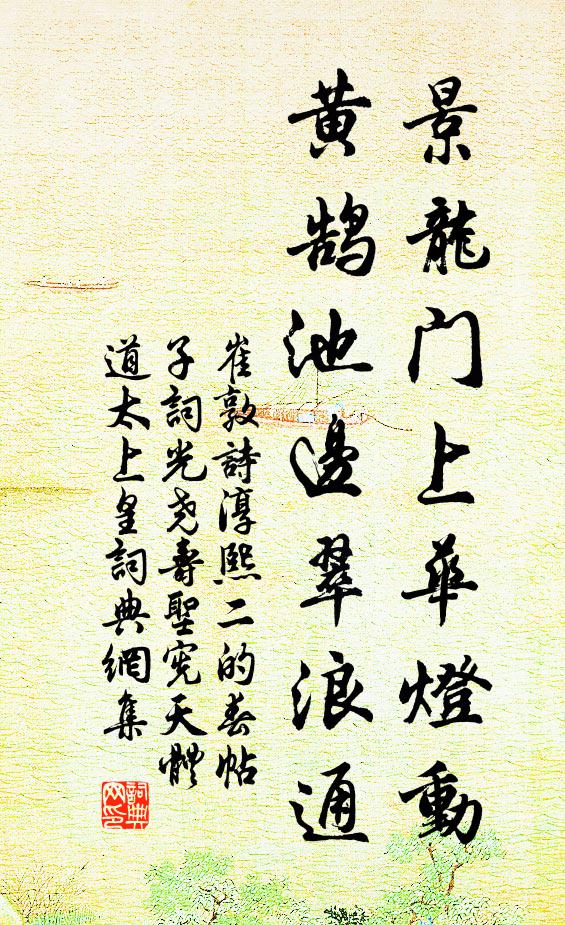 景龍门上華燈動
黄鹄池邊翠浪通
崔敦詩淳熙二的春帖
子詞光尧壽聖宪天體
道太上皇詞典網集
詞典网印